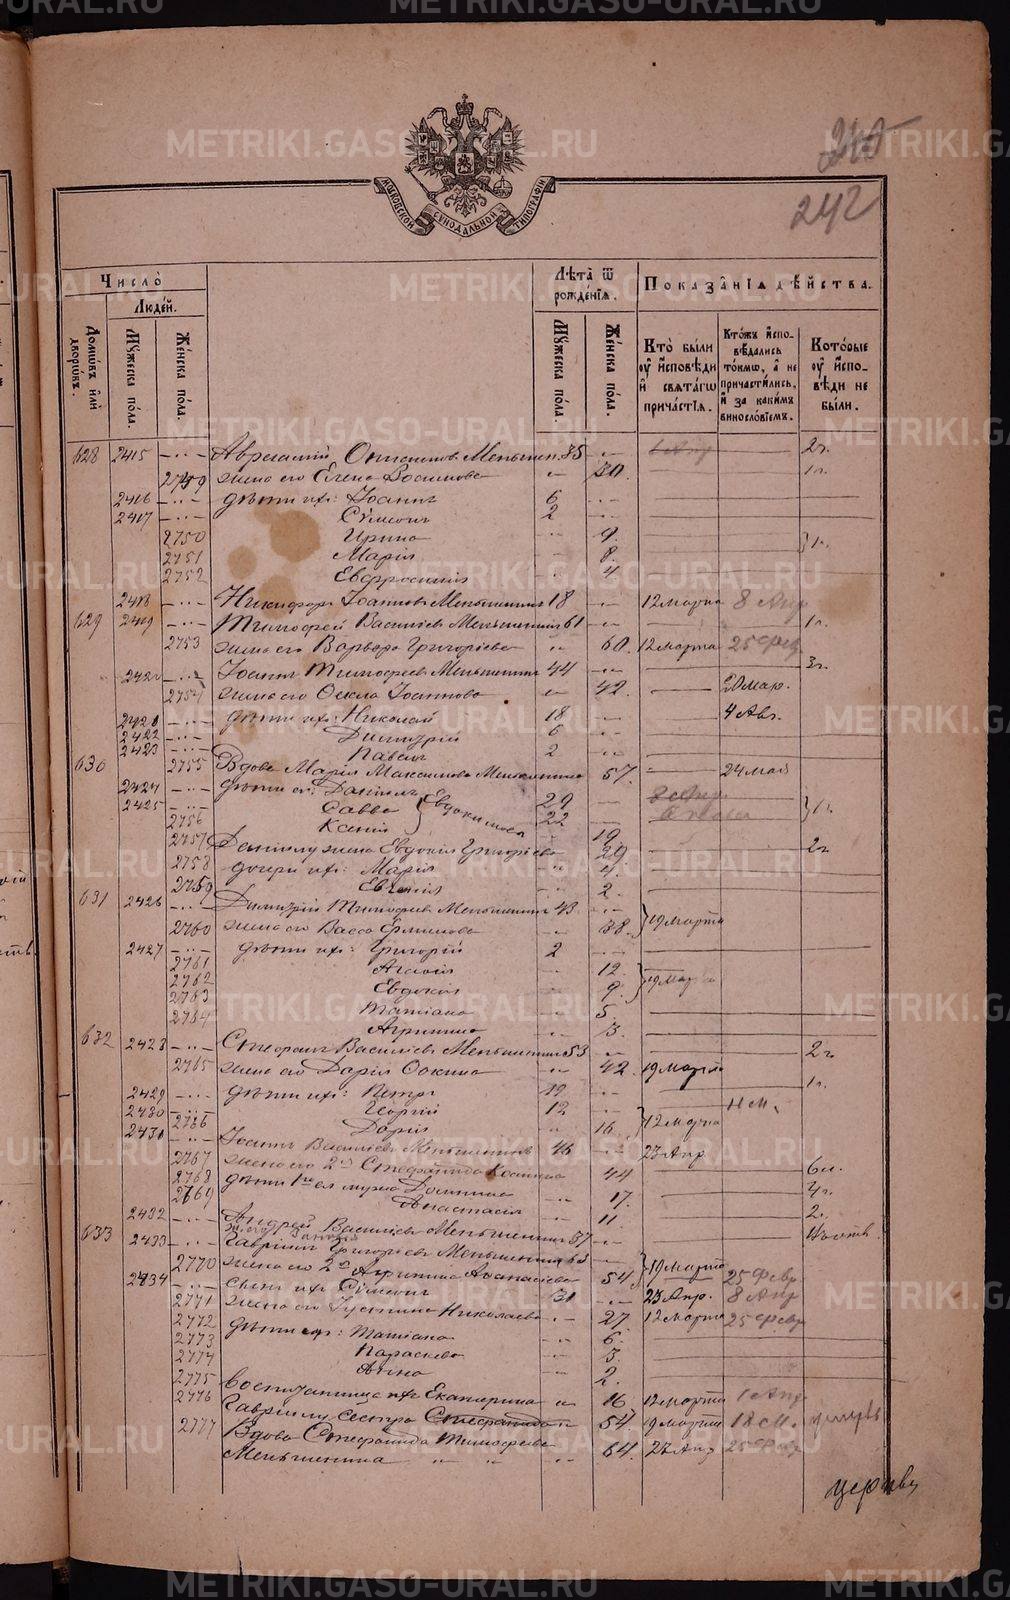 242
МОСКОВСКОЙ СѴНОДАЛЬНОЙ ТИПОГРАФІИ
Число̀
Людей.
Домѡвъ илѝ дворѡвъ.
Мꙋжеска пола.
Женска пола.
Лѣта ѿ рожденїѧ.
Мꙋжеска пола.
Женска пола.
Показанїѧ дѣйства.
Кто̀ были оу҆ исповѣди и свѧтагѡ причастїѧ.
Ктожъ исповѣдались токмѡ, а не причастились, и за какимъ винословїемъ.
Которые оу҆ исповѣди не были.
628 2415 Авраамий Онисимовъ Меньшен. 35 2г.
2749 жена его Елена Васильева 30. 1г.
2416 дѣти ихъ: Іоаннъ 6
2417 Сѵмеонъ 2
2750 Ирина 9. 1г.
2751 Марія 8.
2752 Евфросинія 4
2418 Никифоръ Іоанновъ Меньшенинъ 18 12 марта 8 Апр
629 2419 Тимофей Василіевъ Меньшенинъ 61 1г.
2753 жена его Варвара Григоріева 60. 12 марта 25 Февр
2420 Іоаннъ Тимофеевъ Меньшенинъ 44 3г.
2754 жена его Ѳекла Іоаннова 42. 20 мар.
2421 дѣти ихъ: Николай 18 4 Авг.
2422 Димитрій 6
2423 Павелъ 2
630 2755 Вдова Марія Максимова Меньшенина 57. 24 май
2424 дѣти ея: Даніилъ 29
2425 Савва Евдокимовы 22 1г.
2756 Ксенія 19
2757 Даніилу жена Евдокія Григоріева 29 2г
2758 дочери ихъ: Марія 4.
2759 Евгенія 2.
631 2426 Димитрій Тимофеевъ Меньшенинъ 43
2760 жена его Васса Ермилова 38. 19 марта
2427 дѣти ихъ: Григорій 2
2761 Агафія 12.
2762 Евдокія 9. 19 Марта
2763 Татіана 5.
2764 Агрипина 3.
632 2428 Стефанъ Василіевъ Меньшенинъ 53 2г.
2765 жена его Дарія Фокина 42. 19 марта
2429 дѣти ихъ: Петръ 19 1г.
2430 Георгій 12 11 М.
2766 Дарія 16. 12 марта
2431 Іоаннъ Василіевъ Меньшенинъ 46 23 Апр.
2767 жена его 2ая Стефанида Косьмина 44 6л.
2768 дѣти 1го ея мужа Домнина 17. 4г.
2769 Анастасія 11 2.
2432 Андрей Василіевъ Меньшенинъ 37
633 2433 Гавріилъ Григоріевъ Меньшенинъ 63
2770 жена его 2я Агрипина Аѳанасіева 54. 19 марта 25 Февр.
2434 сынъ ихъ Сѵмеонъ 31 23 Апр. 8 Апр
2771 жена его Іустина Николаева 27. 12 марта 25 Февр
2772 дѣти ихъ: Татіана 6.
2773 Параскева 3.
2774 Анна 2.
2775 воспитанница ихъ Екатерина 16 12 марта 1 Апр
2776 Гавріилу сестра Стефанида 54 19 марта 18 М.
2777 Вдова Стефанида Тимофеева 64. 27 Апр 25 Февр
Меньшенина
METRIKI.GASO-URAL.RU